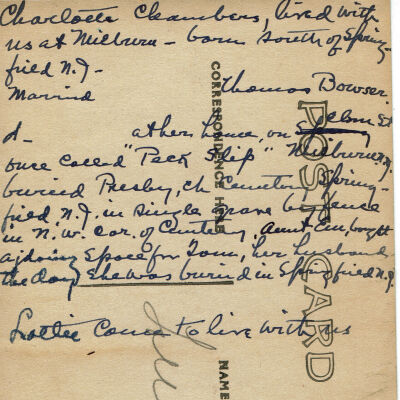 Charlotte Chambers, lived with
us at Milburn - born south of Spring-
field N.J.
Married Thomas Bowser
at her home, on Elm St
once called "Peck Slip" Milburn N.J.
buried Presby. ch Cemetery Spring-
field N.J. in single grave by fence
in N.W. cor. of Cemetery, Aunt Em, bought
adjoining space for Tom, her husband
the day she was buried in Springfield N.J.
Lottie came to live with us
POST CARD
CORRESPONDENCE HERE
NAME